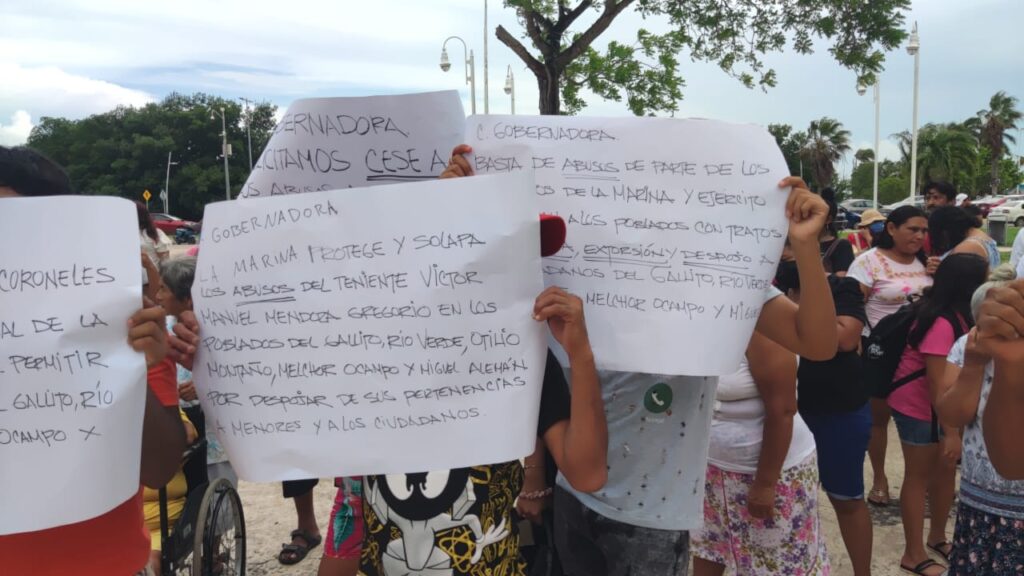 CORONELES
AL DE LA
PERMITIR
GALLITO, RÍO
OCAMPO Y
GOBERNADORA
LA MARINA PROTEGE Y SOLAPA
LOS ABUSOS DEL TENIENTE VÍCTOR
MANUEL MENDOZA GREGORIO EN LOS
POBLADOS DEL GALLITO, RÍO VERDE, OTILIO
MONTAÑO, MELCHOR OCAMPO Y MIGUEL ALEMÁN
POR DESPOJAR DE SUS PERTENENCIAS
A MENORES Y A LOS CIUDADANOS.
BERNADORA
CITAMOS CESE A
ABUSOS
C. GOBERNADORA
BASTA DE ABUSOS DE PARTE DE LOS
OS DE LA MARINA Y EJERCITO
A LOS POBLADOS CON TRATOS
A, EXPORSIÓN Y DESPOJO A
DANOS DEL GALLITO, RÍO VERDE
MELCHOR OCAMPO Y MIGUE